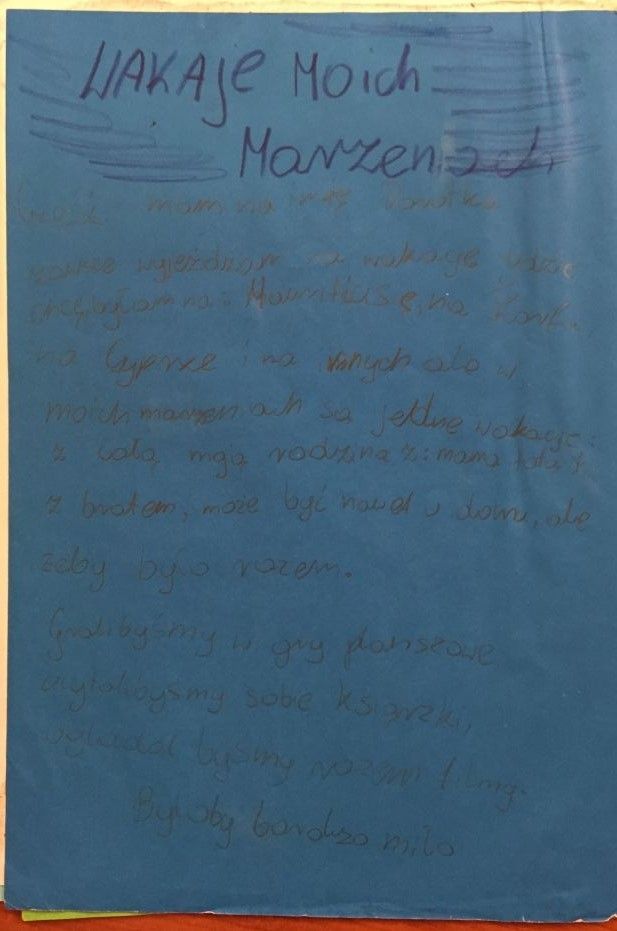 WAKAJE Moich
Marzeniach
Cześć mam na imię
zawsze wyjeżdżam na wakacje gdzie
chcę, byłam na: Mauritiusie, na
na Cyprze i na innych ale w
moich marzeniach są jedne wakacje:
z całą moją rodziną z: mamą tatą i
z bratem, może być nawet w domu, ale
żeby było razem.
Gralibyśmy w gry planszowe
czytalibyśmy sobie książki,
oglądal byśmy razem filmy.
Byłoby bardzo miło